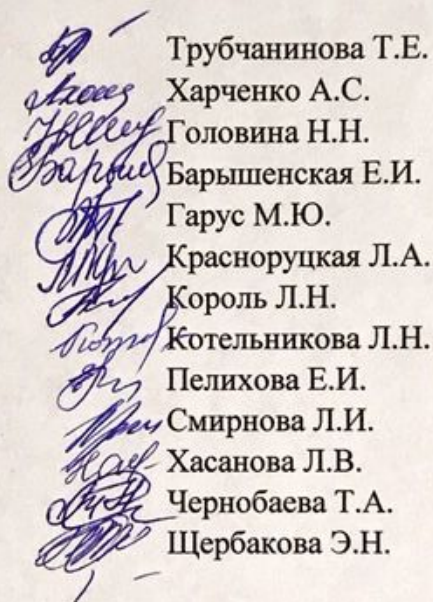 Трубчанинова Т.Е.
Харченко А.С.
Головина Н.Н.
Барышенская Е.И.
Гарус М.Ю.
Красноруцкая Л.А.
Король Л.Н.
Котельникова Л.Н.
Пелихова Е.И.
Смирнова Л.И.
Хасанова Л.В.
Чернобаева Т.А.
Щербакова Э.Н.